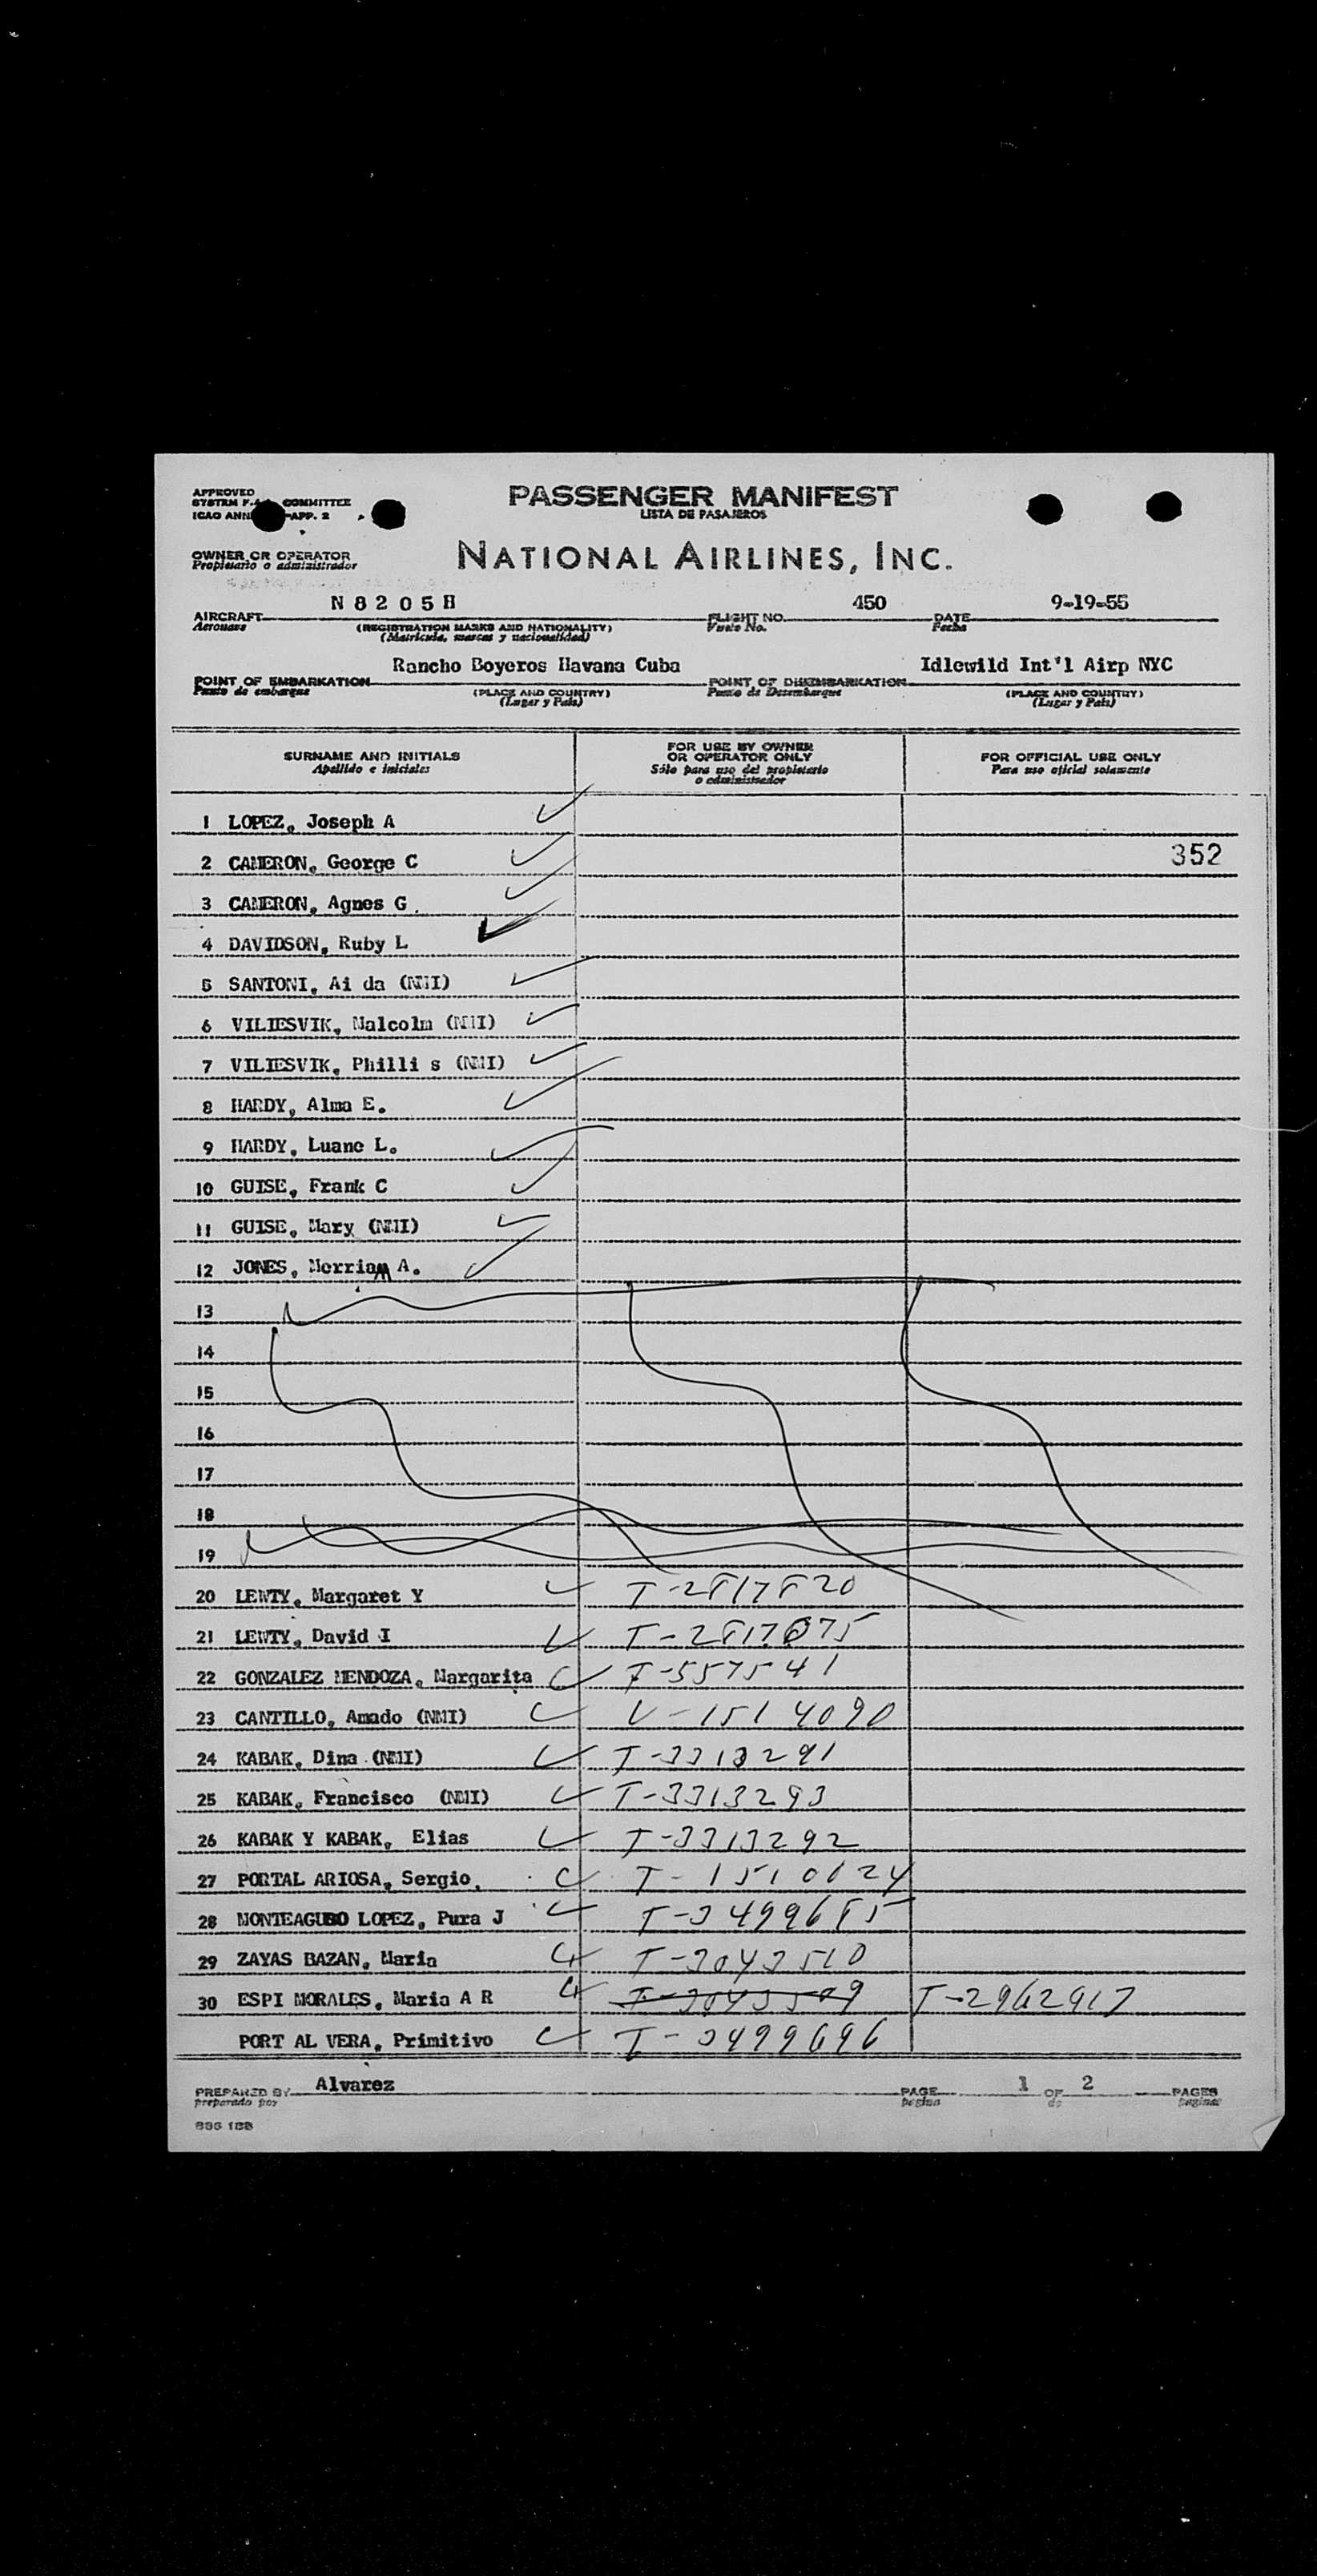 APPROVED
PASSENGER MANIFEST
SYSTEM COMMITTEE
LISTA DE PASAJEROS
ICAO APP. 2
OWNER OR OPERATOR
Propietario o administrador
NATIONAL AIRLINES, INC.
AIRCRAFT N 8 2 0 5 H FLIGHT NO. 450 DATE 9-19-55
Aeronave (REGISTRATION MARKS AND NATIONALITY) Vuelo No. Fecha
(Matrícula, marcas y nacionalidad)
POINT OF EMBARKATION Rancho Boyeros Havana Cuba POINT OF DISEMBARKATION Idlewild Int'l Airp NYC
Punto de embarque (PLACE AND COUNTRY) Punto de Desembarque (PLACE AND COUNTRY)
(Lugar y País) (Lugar y País)
SURNAME AND INITIALS FOR USE BY OWNER OR OPERATOR ONLY FOR OFFICIAL USE ONLY
Apellido e iniciales Sólo para uso del propietario o administrador Para uso oficial solamente
1 LOPEZ, Joseph A
2 CAMERON, George C 352
3 CAMERON, Agnes G.
4 DAVIDSON, Ruby L
5 SANTONI, Ai da (NMI)
6 VILIESVIK, Malcolm (NMI)
7 VILIESVIK, Philli s (NMI)
8 HARDY, Alma E.
9 HARDY, Luane L.
10 GUISE, Frank C
11 GUISE, Mary (NMI)
12 JONES, Merriam A.
13
14
15
16
17
18
19
20 LEWTY, Margaret Y T-2817820
21 LEWTY, David I T-2817875
22 GONZALEZ MENDOZA, Margarita T-557541
23 CANTILLO, Amado (NMI) V-1514090
24 KABAK, Dina (NMI) T-3313291
25 KABAK, Francisco (NMI) T-3313293
26 KABAK Y KABAK, Elias T-3313292
27 PORTAL ARIOSA, Sergio, T-1510624
28 MONTEAGUDO LOPEZ, Pura J T-3499685
29 ZAYAS BAZAN, Maria T-3043510
30 ESPI MORALES, Maria A R T-3043509 T-2962917
PORT AL VERA, Primitivo T-3499696
PREPARED BY Alvarez PAGE 1 OF 2 PAGES
preparado por página de páginas